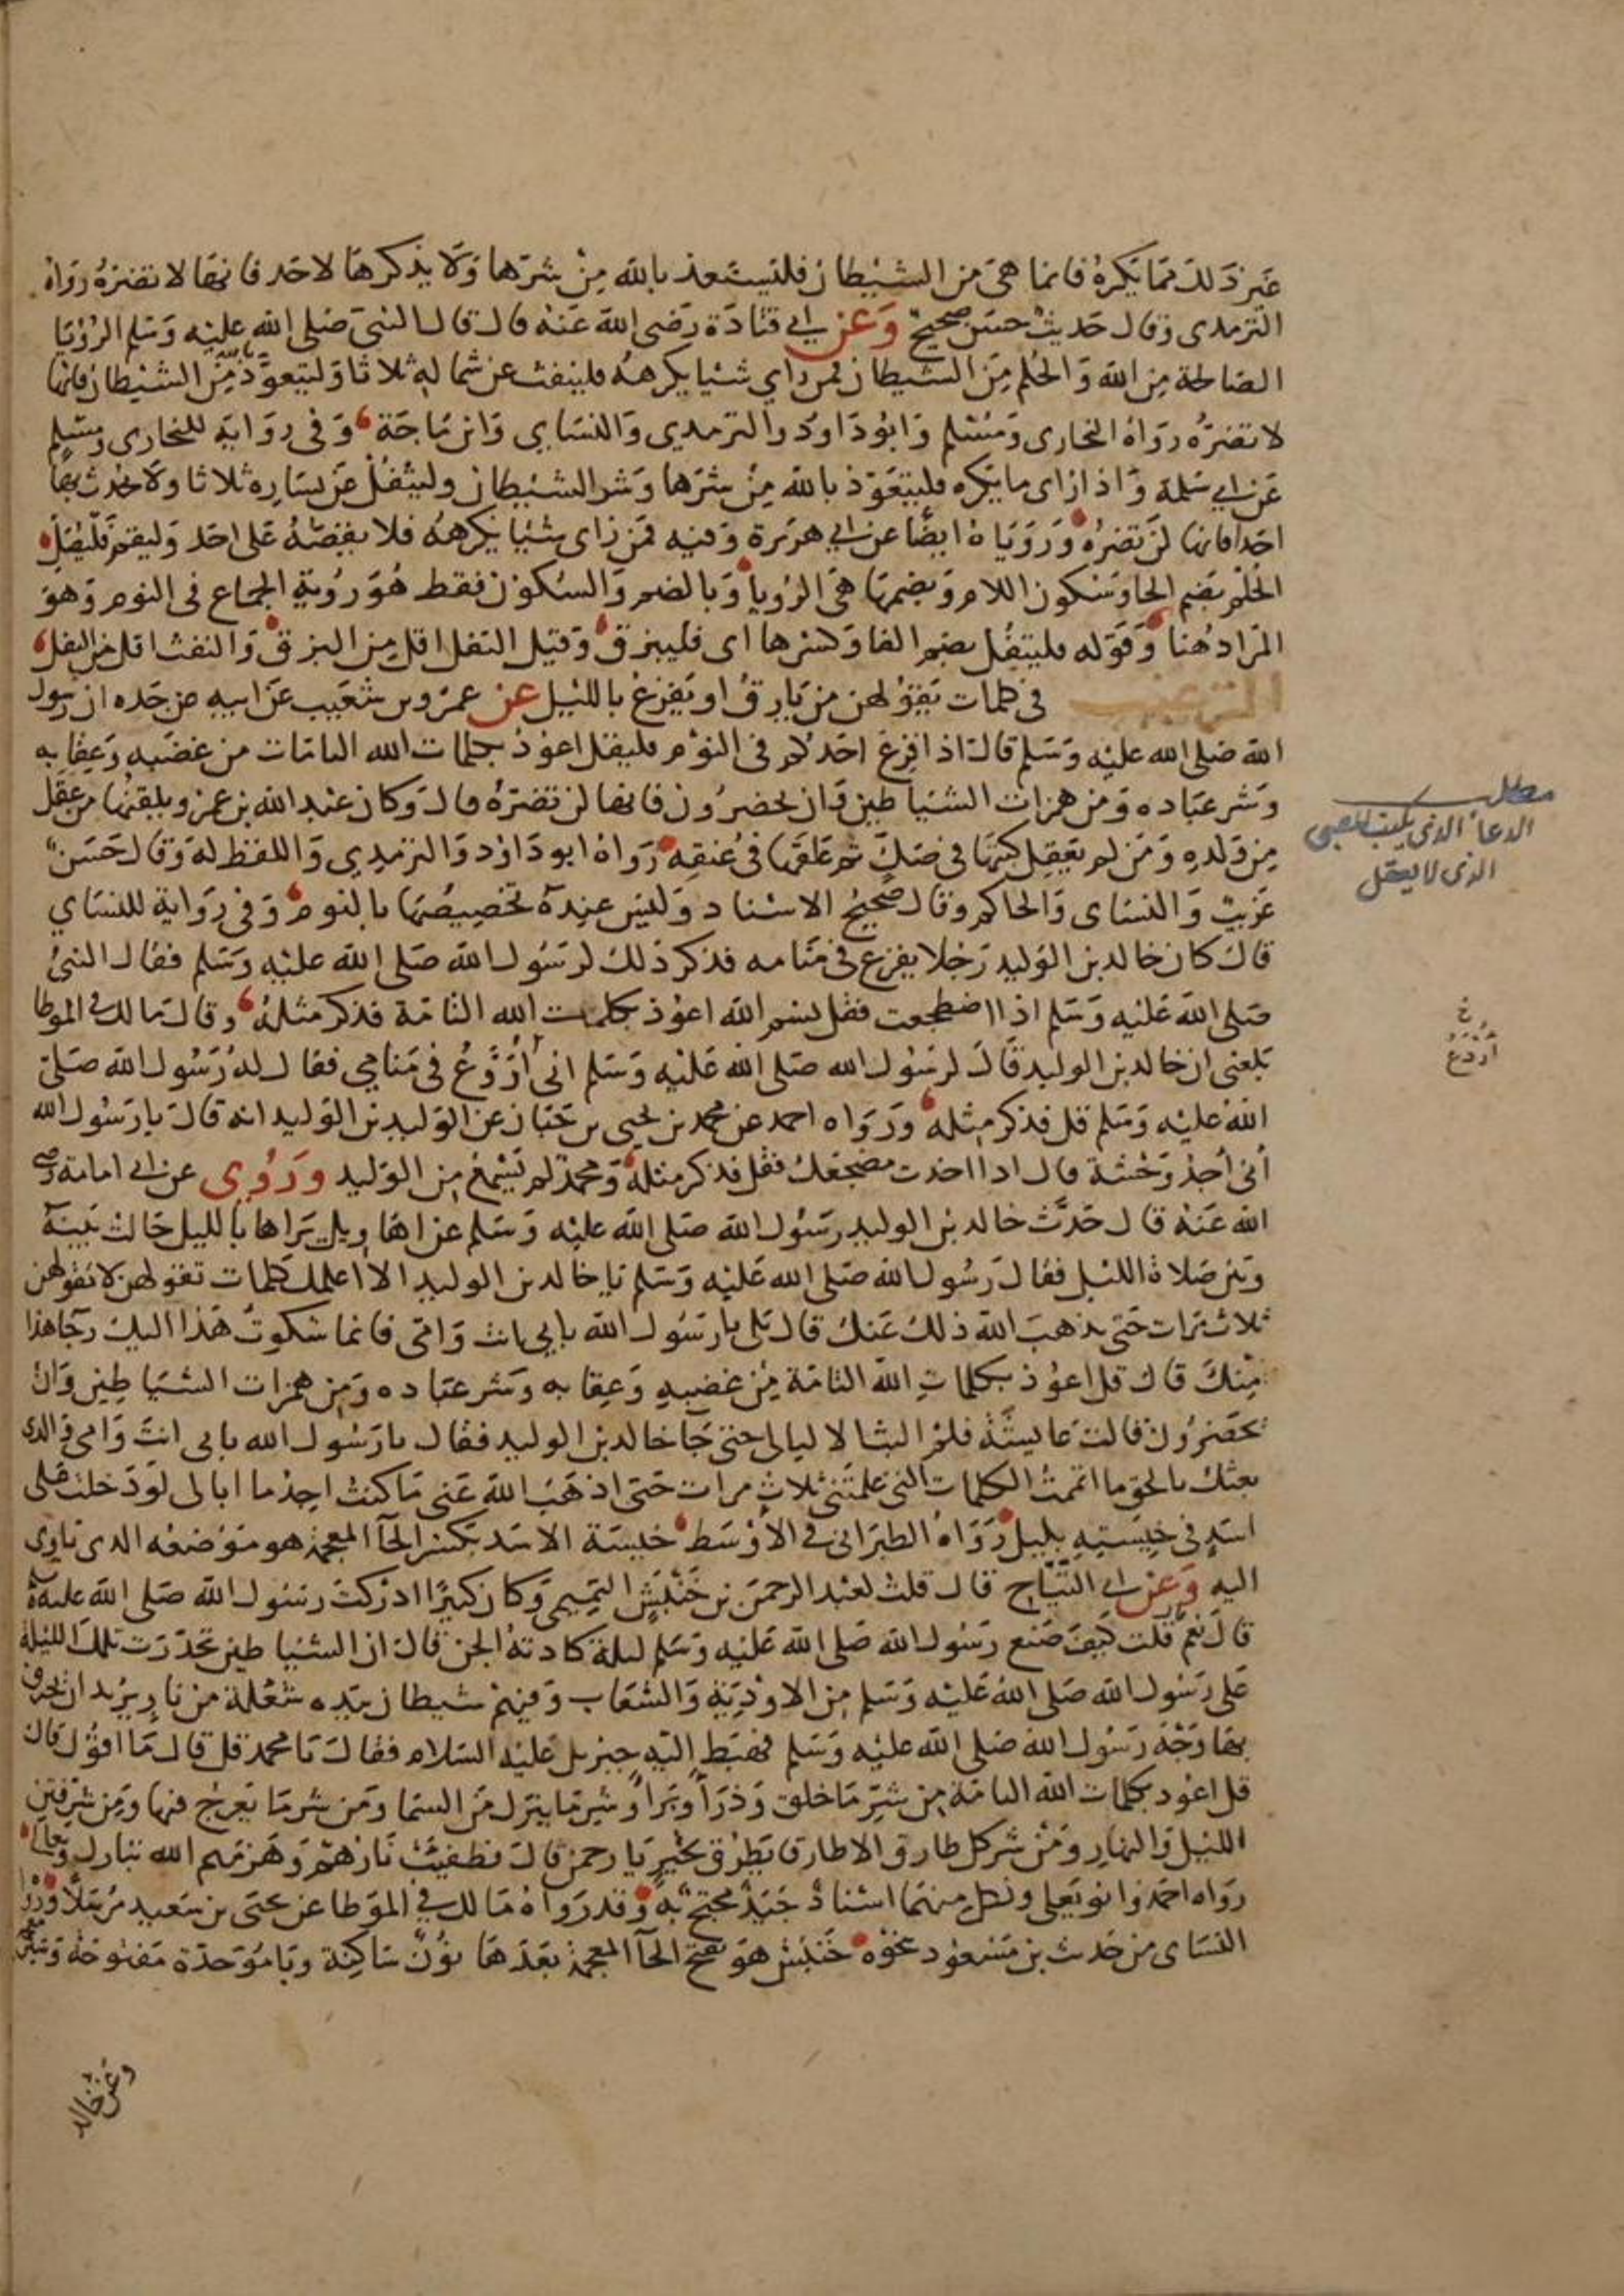 غير ذلك مما يكره فانما هي من الشيطان فليستعذ بالله من شرها ولا يذكرها لاحد فانها لا تضره رواه
الترمذي وقال حديث حسن صحيح وعن ابي قتادة رضي الله عنه قال قال النبي صلى الله عليه وسلم الرؤيا
الصالحة من الله والحلم من الشيطان فمن راي شيا يكرهه فلينفث عن شماله ثلاثا وليتعوذ بالله من الشيطان فانها
لا تضره رواه البخاري ومسلم وابو داود والترمذي والنساي وابن ماجة وفي رواية للبخاري ومسلم
عن ابي سلمة واذا راى ما يكره فليتعوذ بالله من شرها وشر الشيطان وليتفل عن يساره ثلاثا ولا يحدث بها
احدا فانها لن تضره وروياه ايضا عن ابي هريرة وفيه فمن راى شيا يكرهه فلا يقصه على احد وليقم فليصل
الحلم بضم الحا وسكون اللام وبضمها هي الرويا وبالضم والسكون فقط هو روية الجماع في النوم وهو
المراد هنا وقوله فليتفل بضم الفا وكسرها اى فليبزق وقيل التفل اقل من البزق والنفث اقل من التفل
الترغيب في كلمات يقولهن من يارق او يفزع بالليل عن عمرو بن شعيب عن ابيه عن جده ان رسول
الله صلى الله عليه وسلم قال اذا افزع احدكم في النوم فليقل اعوذ بكلمات الله التامات من غضبه وعقابه
وشر عباده ومن همزات الشياطين وان يحضرون فانها لن تضره قال وكان عبد الله بن عمرو يلقنها من عقل
من ولده ومن لم يعقل كتبها في صك ثم علقها في عنقه رواه ابو داود والترمذي واللفظ له وقال حسن
غريب والنساى والحاكم وقال صحيح الاسناد وليس عنده تخصيصها بالنوم وفي رواية للنساي
قال كان خالد بن الوليد رجلا يفزع في منامه فذكر ذلك لرسول الله صلى الله عليه وسلم فقال النبي
صلى الله عليه وسلم اذا اضطجعت فقل بسم الله اعوذ بكلمات الله التامة فذكر مثله وقال مالك في الموطا
بلغني ان خالد بن الوليد قال لرسول الله صلى الله عليه وسلم اني أروع في منامي فقال له رسول الله صلى
الله عليه وسلم قل فذكر مثله ورواه احمد عن محمد بن يحيى بن حبان عن الوليد بن الوليد انه قال يا رسول الله
أني أجد وحشة قال اذا اخذت مضجعك فقل فذكر مثله ومحمد لم يسمع من الوليد وروي عن ابي امامة رضي
الله عنه قال حدث خالد بن الوليد رسول الله صلى الله عليه وسلم عن اهاويل يراها بالليل حالت بينه
وبين صلاة الليل فقال رسول الله صلى الله عليه وسلم يا خالد بن الوليد الا اعلمك كلمات تقولهن لا تقولهن
ثلاث مرات حتى يذهب الله ذلك عنك قال بلى يا رسول الله بابي انت وامي فانما شكوت هذا اليك رجا هذا
منك قال قل اعوذ بكلمات الله التامة من غضبه وعقابه وشر عباده ومن همزات الشياطين وان
يحضرون قالت عايشة فلم البث الا ليالى حتى جا خالد بن الوليد فقال يا رسول الله بابي انت وامي والذي
بعثك بالحق ما اتممت الكلمات التي علمتني ثلاث مرات حتى اذهب الله عني ما كنت اجد ما ابالى لو دخلت على
اسد في خيسته بليل رواه الطبراني في الاوسط خيسة الاسد بكسر الخآ المعجمة هو موضعه الذي ياوي
اليه وعن ابي التياح قال قلت لعبد الرحمن بن خنبش التميمي وكان كبيرا ادركت رسول الله صلى الله عليه وسلم
قال نعم قلت كيف صنع رسول الله صلى الله عليه وسلم ليلة كادته الجن قال ان الشياطين تحدرت تلك الليلة
على رسول الله صلى الله عليه وسلم من الاودية والشعاب وفيهم شيطان بيده شعلة من نار يريد ان يحرق
بها وجه رسول الله صلى الله عليه وسلم فهبط اليه جبريل عليه السلام فقال يا محمد قل قال ما اقول قال
قل اعوذ بكلمات الله التامة من شر ما خلق وذرأ وبرأ وشر ما ينزل من السما ومن شر ما يعرج فيها ومن شر فتن
الليل والنهار ومن شر كل طارق الا طارق يطرق بخير يا رحمن قال فطفيت نارهم وهزمهم الله تبارك وتعالى
رواه احمد وابو يعلى ولكل منهما اسناد جيد محتج به وقد رواه مالك في الموطا عن يحيى بن سعيد مرسلا ورواه
النساى من حديث بن مسعود نحوه خنبش هو بفتح الخآ المعجمة بعدها نون ساكنة وبا موحدة مفتوحة وشين
مطلب
الدعا الذي يكتب للصبي
الذي لا يعقل
أروع
وعن خالد